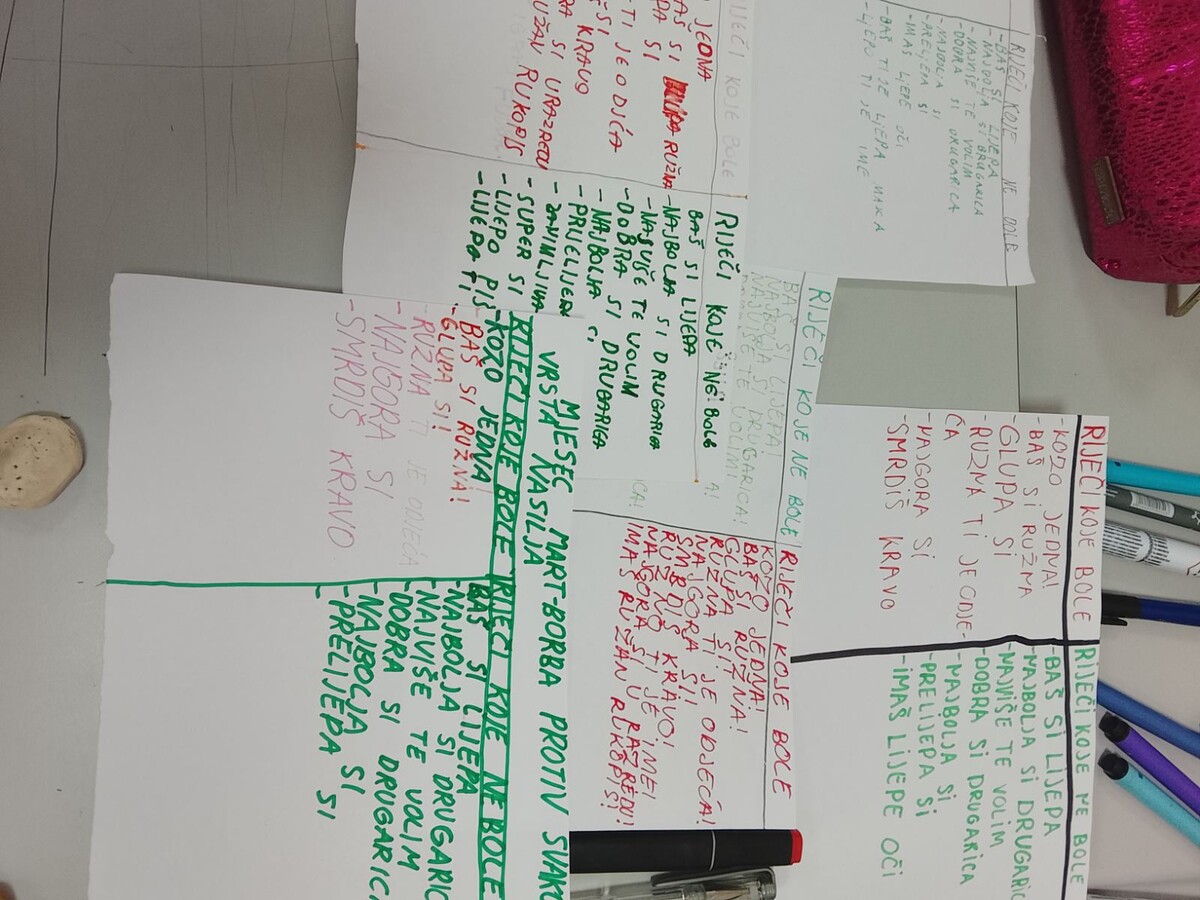 RIJEČI KOJE NE BOLE
- BAŠ SI LIJEPA
- NAJBOLJA SI DRUGARICA
- NAJVIŠE TE VOLIM
- DOBRA SI DRUGARICA
- NAJBOLJA SI
- PRELIJEPA SI
- IMAŠ LIJEPE OČI
- BAŠ TI JE LIJEPA
- LIJEPO TI JE IME
RIJEČI KOJE BOLE
JEDNA
BAŠ SI RUŽNA
SI
TI JE ODJEĆA
KRAVO
SI U RAZREDU
RUŽAN RUKOPIS
RIJEČI KOJE NE BOLE
BAŠ SI LIJEPA
- NAJBOLJA SI DRUGARICA
- NAJVIŠE TE VOLIM
- DOBRA SI DRUGARICA
- NAJBOLJA
- PRELIJEPA
- ZANIMLJIVA
- SUPER SI
- LIJEPO PIŠ
- LIJEPA
RIJEČI KOJE NE BOLE
BAŠ SI LIJEPA!
NAJBOLJA SI DRUGARICA!
NAJVIŠE TE VOLIM!
RIJEČI KOJE BOLE
KOZO JEDNA!
BAŠ SI RUŽNA!
GLUPA SI!
RUŽNA TI JE ODJEĆA!
NAJGORA SI!
SMRDIŠ KRAVO!
RUŽNO TI JE IME!
NAJGORA SI U RAZREDU!
IMAŠ RUŽAN RUKOPIS!
RIJEČI KOJE BOLE
- KOZO JEDNA!
- BAŠ SI RUŽNA
- GLUPA SI
- RUŽNA TI JE ODJE-
ĆA
- NAJGORA SI
- SMRDIŠ KRAVO
RIJEČI KOJE NE BOLE
- BAŠ SI LIJEPA
- NAJBOLJA SI DRUGARIC
- NAJVIŠE TE VOLIM
- DOBRA SI DRUGARICA
- NAJBOLJA SI
- PRELIJEPA SI
- IMAŠ LIJEPE OČI
MJESEC MART-BORBA PROTIV SVAKO
VRSTA NASILJA
RIJEČI KOJE BOLE
- KOZO JEDNA
- BAŠ SI RUŽNA!
- GLUPA SI!
- RUŽNA TI JE ODJEĆA
- NAJGORA SI
- SMRDIŠ KRAVO
RIJEČI KOJE NE BOLE
- BAŠ SI LIJEPA
- NAJBOLJA SI DRUGARIC
- NAJVIŠE TE VOLIM
- DOBRA SI DRUGARIC
- NAJBOLJA SI
- PRELIJEPA SI